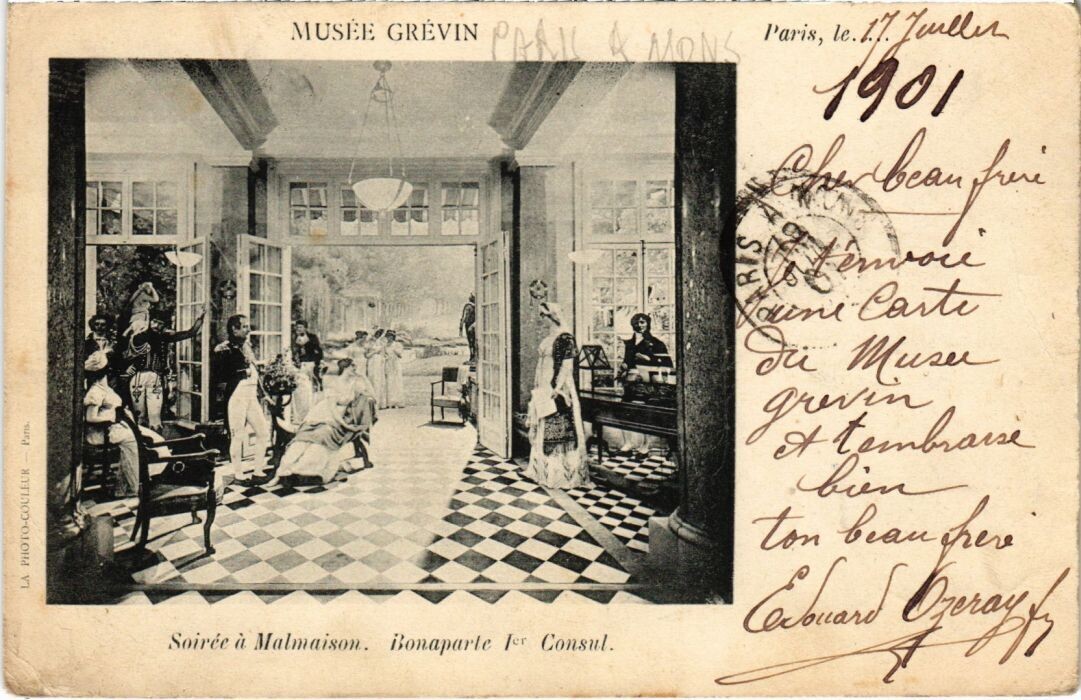 MUSÉE GRÉVIN
PARIS A MONS
Paris, le... 17 Juillet
1901
Cher beau frère
t'envoie
une Carte
du Musee
grevin
et t'embrasse
bien
ton beau frere
Edouard Ozeray fr
PARIS A MONS
LA PHOTO-COULEUR — Paris.
Soirée à Malmaison. Bonaparte Ier Consul.